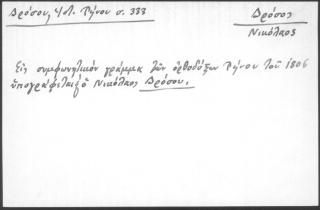 Δρόσου, Ἱστ. Τήνου σ. 333
Δρόσος
Νικόλαος
Εἰς συμφωνητικόν γράμμα τῶν ὀρθοδόξων Τήνου τοῦ 1806
ὑπογράφεται ὁ Νικόλαος Δρόσου.